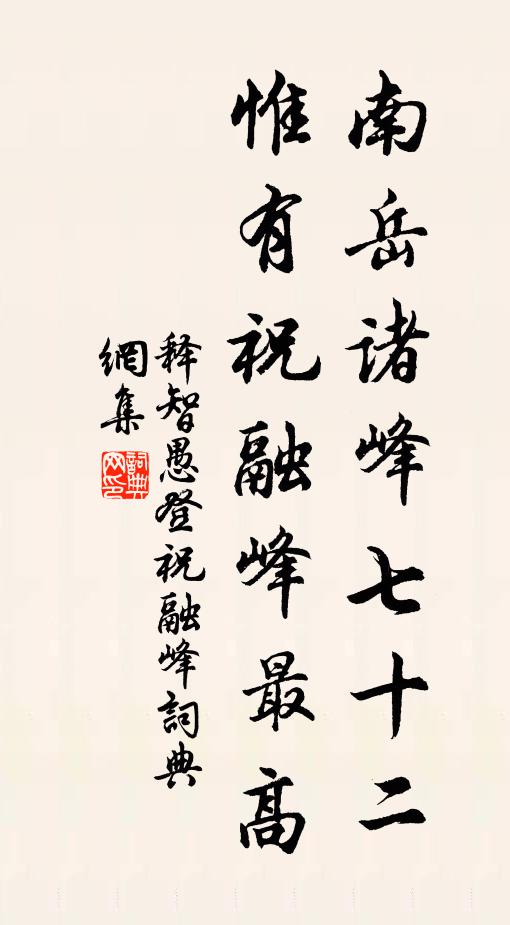 南岳诸峰七十二
惟有祝融峰最高
释智愚登祝融峰詞典
網集
詞典
网印